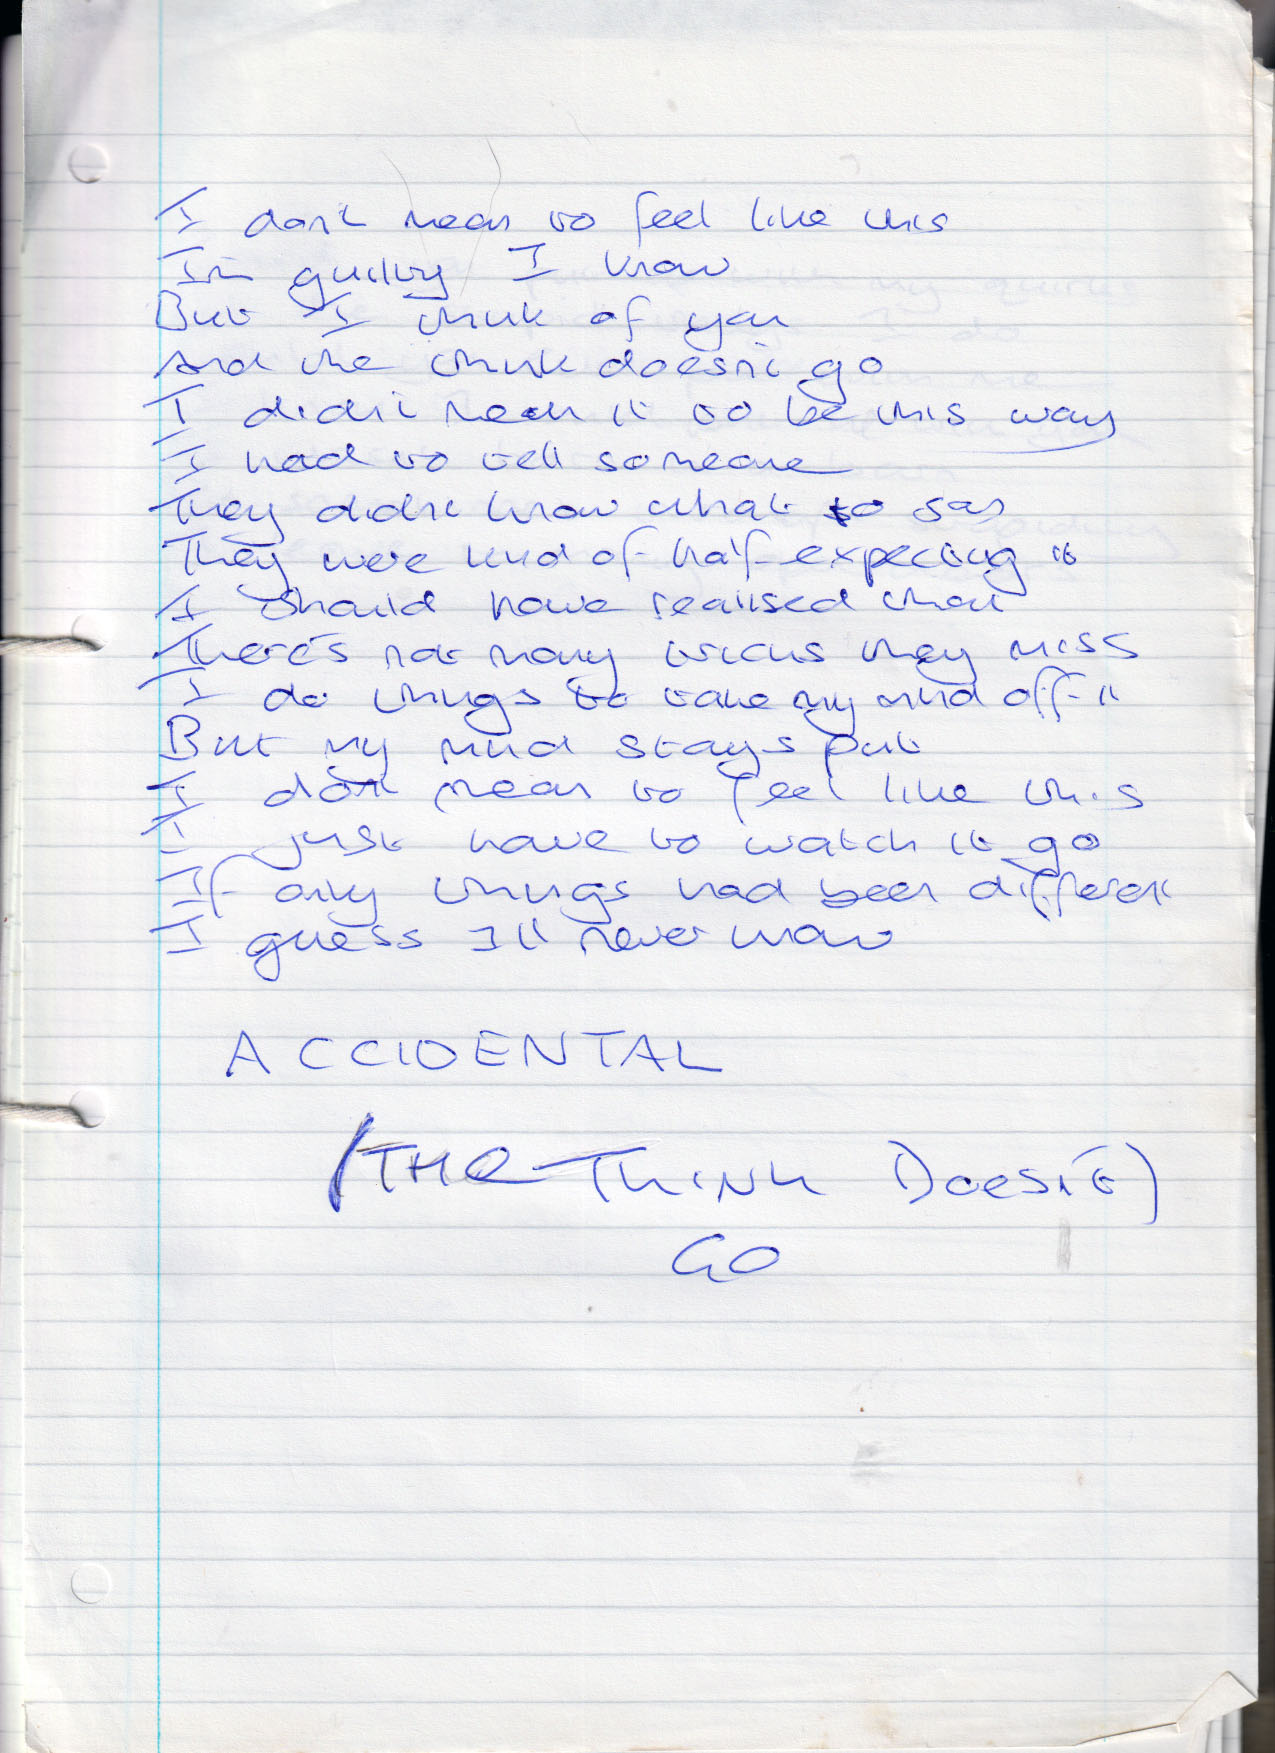 I don't mean to feel like this
I'm guilty I know
But I think of you
And the think doesn't go
I didn't mean it to be this way
I had to tell someone
They didn't know what to say
They were kind of half-expecting it
I should have realised that
There's not many tricks they miss
I do things to take my mind off it
But my mind stays put
I don't mean to feel like this
I just have to watch it go
If only things had been different
I guess I'll never know
ACCIDENTAL
(THE THINK DOESN'T)
GO